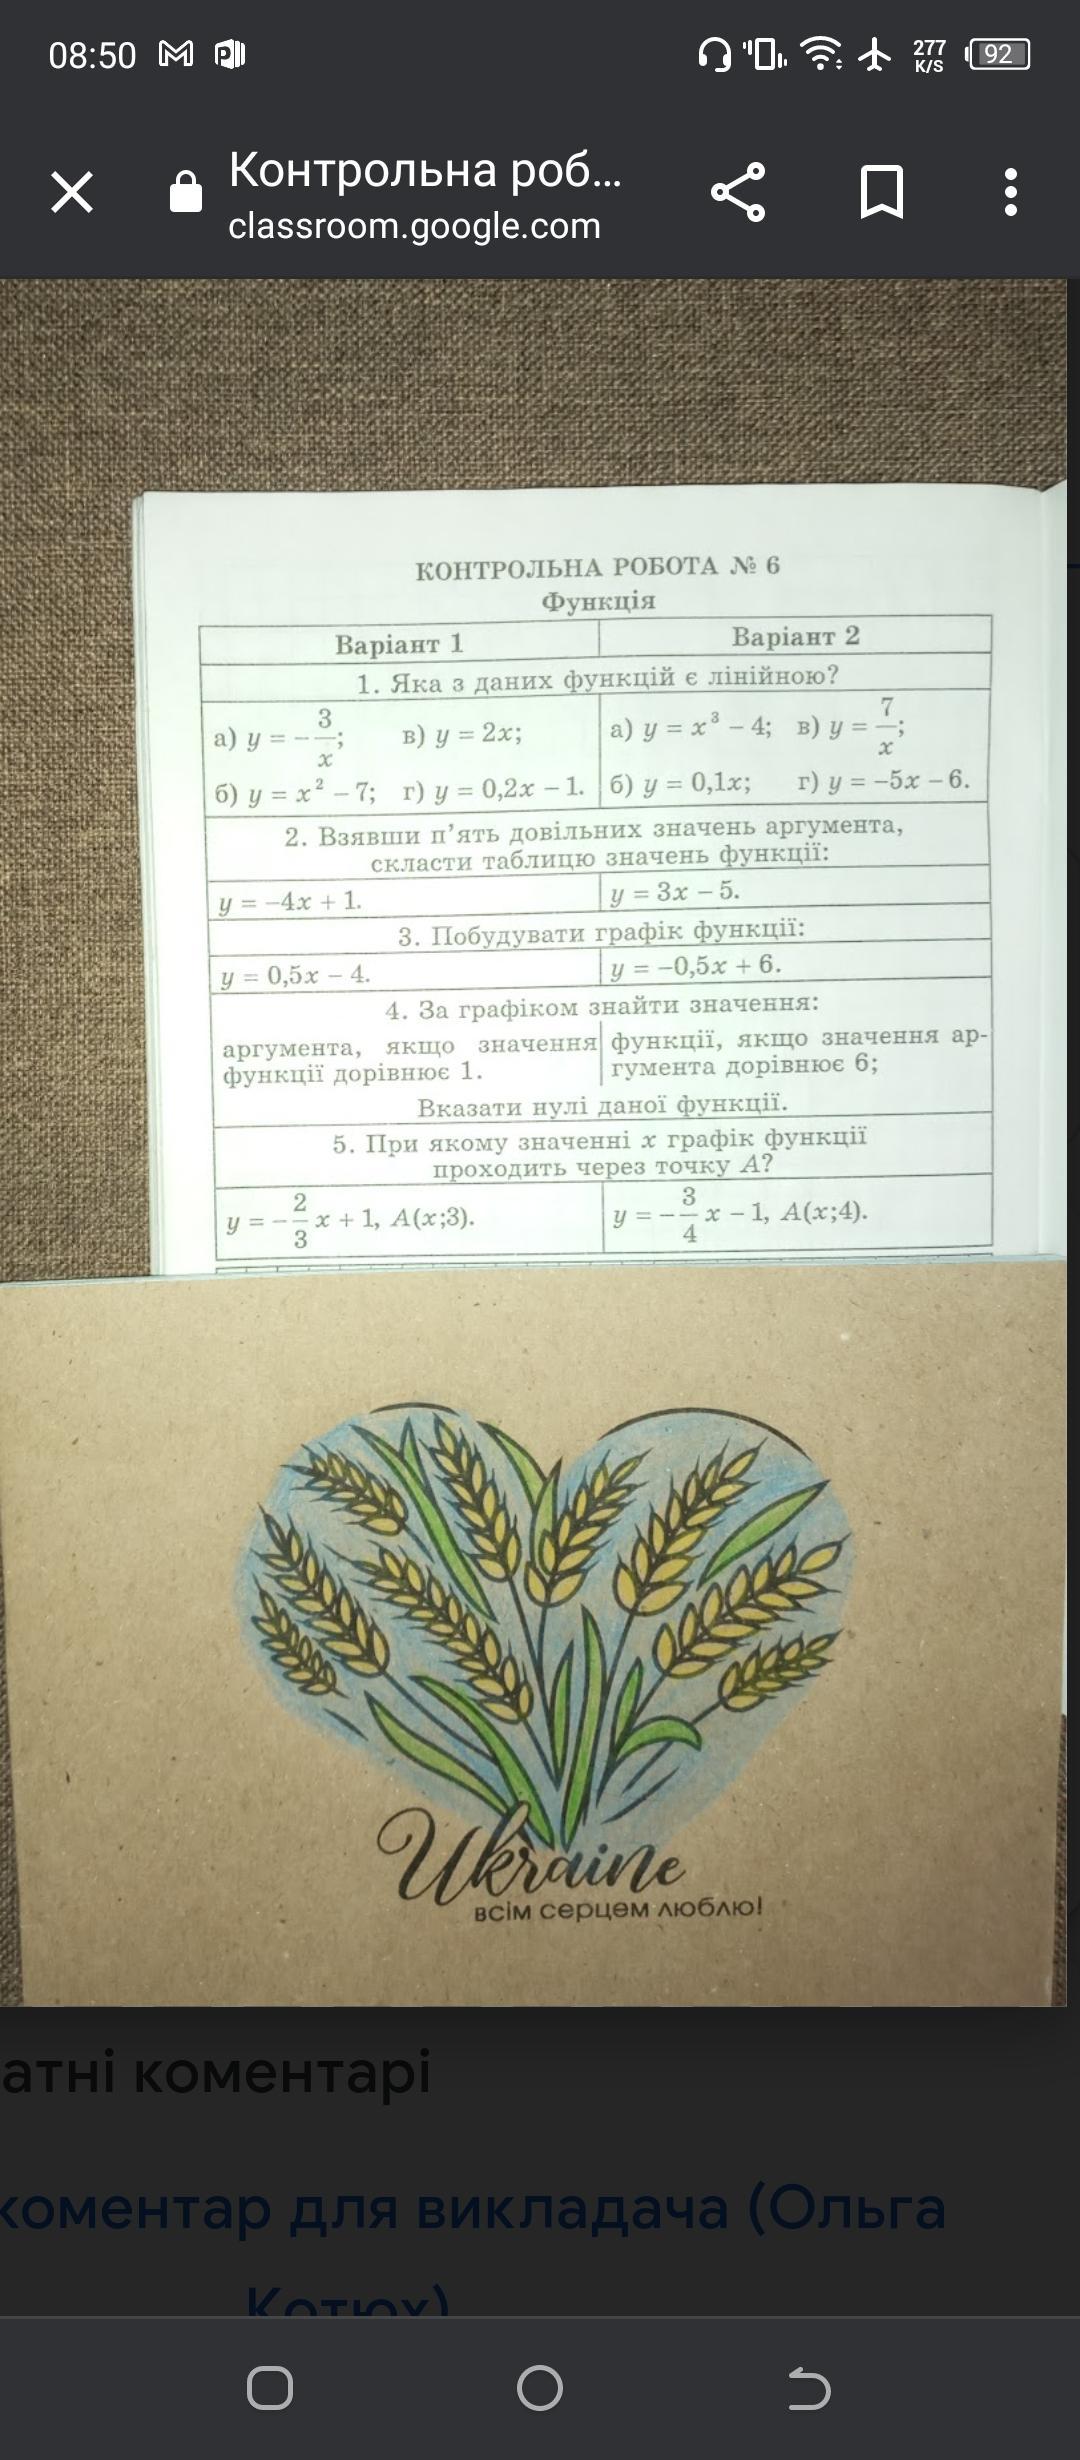 08:50
277
K/S
92
Контрольна роб...
classroom.google.com
КОНТРОЛЬНА РОБОТА № 6
Функція
Варіант 1 Варіант 2
1. Яка з даних функцій є лінійною?
а) y = −3/x; в) y = 2x; а) y = x³ − 4; в) y = 7/x;
б) y = x² − 7; г) y = 0,2x − 1. б) y = 0,1x; г) y = −5x − 6.
2. Взявши п’ять довільних значень аргумента,
скласти таблицю значень функції:
y = −4x + 1. y = 3x − 5.
3. Побудувати графік функції:
y = 0,5x − 4. y = −0,5x + 6.
4. За графіком знайти значення:
аргумента, якщо значення функції, якщо значення ар-
функції дорівнює 1. гумента дорівнює 6;
Вказати нулі даної функції.
5. При якому значенні x графік функції
проходить через точку A?
y = −2/3 x + 1, A(x;3). y = −3/4 x − 1, A(x;4).
Ukraine
всім серцем люблю!
атні коментарі
коментар для викладача (Ольга
Котюх)